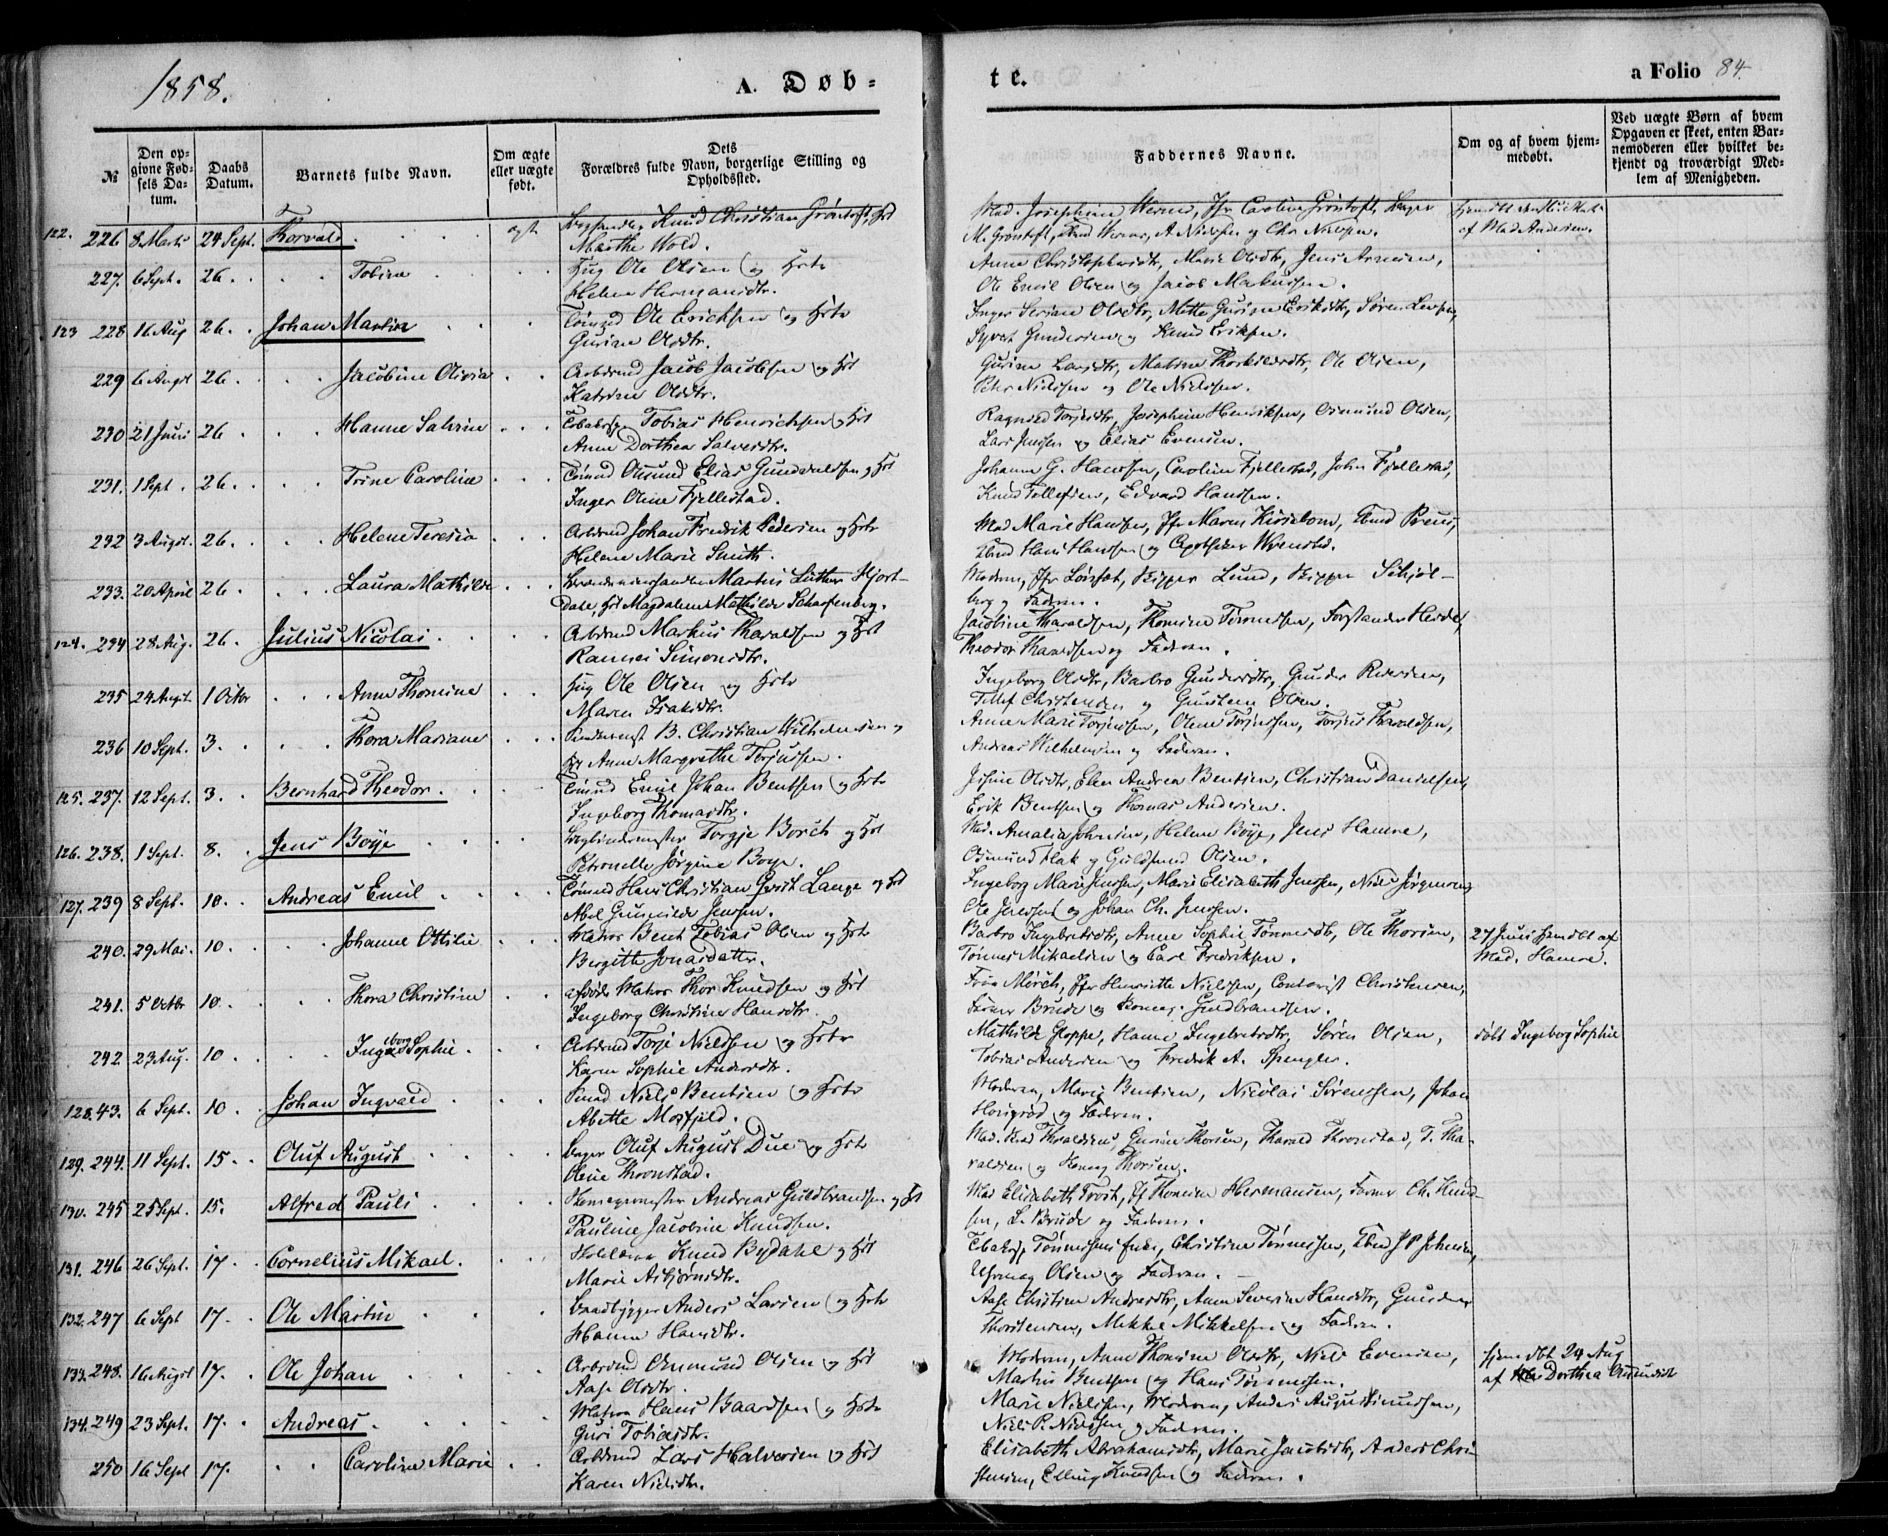 1858.
A. Døb-
te.
a Folio 84.
№
Den op-
givne Fød-
sels Da-
tum.
Daabs
Datum.
Barnets fulde Navn.
Om ægte
eller uægte
født.
Dets
Forældres fulde Navn, borgerlige Stilling og
Opholdssted.
Faddernes Navne.
Om og af hvem hjem-
medøbt.
Ved uægte Børn af hvem
Opgaven er skeet, enten Bar-
nemoderen eller hvilket be-
kjendt og troværdigt Med-
lem af Menigheden.
122. 226 8 Marts 24 Sept. Thorvald Knud Christian Grøntoft, Hst
Marthe Wold.
M. Grøntoft, A. Nielsen og Chr. Nielsen.
af Mad. Andersen.
227. 6 Sept. 26. Tobine Hmg Ole Olsen og Hstr
Helene Hermansdtr.
Anne Christophersdtr, Marie Olsdtr, Jens Arnesen,
Ole Emil Olsen og Jacob Markussen.
123 228 16 Aug 26. Johan Martin Tømmd Ole Erichsen og Hstr
Gurine Olsdtr.
Inger Serine Olsdtr, Mette Gurine Eriksdtr, Søren Larsen,
Syvert Gundersen og Knud Eriksen.
229 6 Augst 26. Jacobine Olivia Arbdmd Jacob Jacobsen og Hst
Katrine Olsdtr.
Gurine Larsdtr, Ole Olsen,
Pehr Nielsen og Ole Nielsen.
230 21 Juni 26. Hanne Salvine Tobias Henrichsen og Hst
Anne Dorthea Salvesdtr.
Ragnild Torjesdtr, Josephine Henriksen, Osmund Olsen,
Lars Jensen og Elias Evensen.
231. 1 Sept. 26. Trine Caroline Tømmd Osmund Elias Gunvaldsen og Hst
Inger Oline Fjellestad.
Johanne G. Hansen, Caroline Fjellestad, John Fjellestad,
Knud Tollefsen, Edvard Hansen.
232 3 Augst. 26. Helene Teresia Arbdmd Johan Fredrik Pedersen og Hstr
Helene Marie Smith.
Mad Marie Hansen, Jfr Maren Kirsebom,
Hans Hansen og Apotheker
233. 20 April 26. Laura Mathilde Martin Luther Hjort-
dahl, Hst Magdalene Mathilde Scharfenberg.
Moderen, Skipper Lund, Skipper Schjøl-
berg og Faderen.
124. 234 28 Aug. 26. Julius Nicolai Arbdmd Markus Tharaldsen og Hst
Rannei Simonsdtr.
Jacobine Tharaldsen, Thomine Tønnesen, Forstander
Theodor Tharaldsen og Faderen.
235 24 Augst. 1 Octbr Anne Thomine Hmg Ole Olsen og Hstr
Maren Isaksdtr.
Ingeborg Olsdtr, Barbro Gundersdtr, Gunder
Tellef Christensen og Gunsten Olsen.
236 10 Sept. 3. Thora Mariane B. Christian Wilhelmsen og
Hst Anne Margrethe Torjussen.
Anne Marie Torjussen, Olene Torjussen, Torjus Tharaldsen,
Andreas Wilhelmsen og Faderen.
125. 237. 12 Sept. 3. Bernhard Theodor. Tømmd Emil Johan Bentsen og Hstr
Ingeborg Thomasdtr.
Josine Olsdtr, Elen Andrea Bentsen, Christian Danielsen,
Erik Bentsen og Thomas Andersen.
126. 238. 1 Sept. 8. Jens Boye Bogbindermester Torgje Borch og Hst
Petronelle Jørgine Boye.
Mad. Amalia Johnsen, Helene Boye, Jens Hamre,
Osmund Flak og Guldsmed Olsen.
127. 239 8 Sept. 10. Andreas Emil Tømmd Hans Christian Qvist Lange og Hst
Abel Gunnilde Jensen.
Ingeborg Marie Jenssen, Marie Elisabeth Jenssen, Niels Jørgensen,
Ole Jenssen og Johan Ch. Jenssen.
240. 29 Mai. 10. Johanne Ottilie Matros Bent Tobias Olsen og Hstr
Birgitte Jonasdatter.
Barbro Ingebretsdtr, Anne Sophie Tønnesdtr, Ole Thorsen,
Tønnes Mikaelsen og Carl Fredriksen.
27 Juni hjmdbt af
Mad. Hamre.
241. 5 Octbr 10. Thora Christine afdøde Matros Thor Knudsen og Hst
Ingeborg Christine Hansdtr.
Frue Mørch, Jfr Henriette Nielsen, Contorist Christensen,
Farver Brude og Guldbrandsen.
242. 23 Aug. 10. Ingeborg Sophie. Arbdmd Torje Nielsen og Hstr
Karen Sophie Andersdtr.
Mathilde Gloppe, Hanne Ingebretsdtr, Søren Olsen,
Tobias Andersen og Fredrik A. Spengler.
døbt Ingeborg Sophie
128. 43. 6 Sept. 10. Johan Ingvald Niels Bentsen og Hstr
Abette Mosfjeld.
Moderen, Marie Bentsen, Nicolai Sørensen, Johan
og Faderen.
129. 244. 11 Sept. 15. Oluf August Bager Oluf August Due og Hstr
Oline Thronstad.
Gurine Thorsen, Tharald Thronstad, T. Tha-
raldsen og Thorsen.
130. 245 25 Sept. 15. Alfred Pauli Andreas Guldbrandsen og Hst
Pauline Jacobine Knudsen.
Mad Elisabeth Trost, Jf Thomine Hermansen, Farver Ch. Knud-
sen, L. Brude og Faderen.
131. 246 26 Sept. 17. Cornelius Mikael. Knud Bydahl og Hst
Marie Asbjørnsdtr.
Christine Tønnessen, J P Johnsen,
Uhrmag Olsen og Faderen.
132. 247 6 Sept 17. Ole Martin Baadbygger Anders Larsen og Hstr
Hanne Hansdtr.
Aase Christine Andreasdtr, Anne Severine Hansdtr, Gunder
Thorstensen, Mikkel Mikkelsen og Faderen.
133. 248. 16 Augst 17. Ole Johan Arbdmd Osmund Olsen og Hst
Aase Olsdtr.
Moderen, Anne Thomine Olsdtr, Niels Evensen,
Martin Bentsen og Hans Tønnessen.
hjemdbt 24 Aug
af Dorthea Osmundsdt
134. 249 23 Sept. 17. Andreas. Matros Hans Baardsen og Hstr
Guri Tobiasdtr.
Marie Nielsen, Moderen, Anders August Knudsen,
Niels P. Nielsen og Faderen.
250 16 Sept 17. Caroline Marie Arbdmd Lars Halvorsen og Hst
Karen Nielsdtr.
Elisabeth Abrahamsdtr, Marie Jacobsdtr, Anders Chri-
stensen, Elling Knudsen og Faderen.